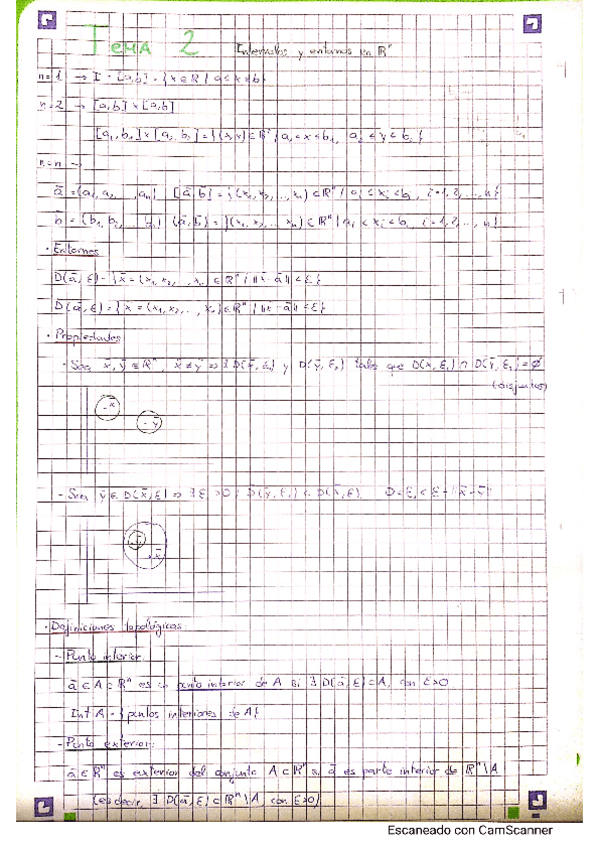 Tema 2 Intervalos y entornos en ℝⁿ
n=1 → I = [a,b] = {x ∈ ℝ / a ≤ x ≤ b}
n=2 → [a,b] × [a,b]
[a₁,b₁] × [a₂,b₂] = {(x,y) ∈ ℝ² / a₁ ≤ x ≤ b₁, a₂ ≤ y ≤ b₂}
n=n →
ā = (a₁, a₂, ..., aₙ) [ā,b̄] = {(x₁, x₂, ..., xₙ) ∈ ℝⁿ / aᵢ ≤ xᵢ ≤ bᵢ, i=1,2,...,n}
b̄ = (b₁, b₂, ..., bₙ) (ā,b̄) = {(x₁, x₂, ..., xₙ) ∈ ℝⁿ / aᵢ < xᵢ < bᵢ, i=1,2,...,n}
· Entornos
D(ā, ε) = {x̄ = (x₁, x₂, ..., xₙ) ∈ ℝⁿ / ‖x̄ - ā‖ < ε}
D̄(ā, ε) = {x̄ = (x₁, x₂, ..., xₙ) ∈ ℝⁿ / ‖x̄ - ā‖ ≤ ε}
· Propiedades
- Sean x̄, ȳ ∈ ℝⁿ, x̄ ≠ ȳ ⇒ ∃ D(x̄, ε₁) y D(ȳ, ε₂) tales que D(x̄, ε₁) ∩ D(ȳ, ε₂) = ∅
(disjuntos)
x̄
ȳ
- Sea ȳ ∈ D(x̄, ε) ⇒ ∃ ε₁ > 0 / D(ȳ, ε₁) ⊂ D(x̄, ε)
ȳ
x̄
· Definiciones topológicas
- Punto interior:
ā ∈ A ⊂ ℝⁿ es un punto interior de A si ∃ D(ā, ε) ⊂ A, con ε>0
Int A = {puntos interiores de A}
- Punto exterior:
ā ∈ ℝⁿ es exterior del conjunto A ⊂ ℝⁿ si ā es punto interior de ℝⁿ\A
(es decir, ∃ D(ā, ε) ⊂ ℝⁿ\A, con ε>0)
Escaneado con CamScanner